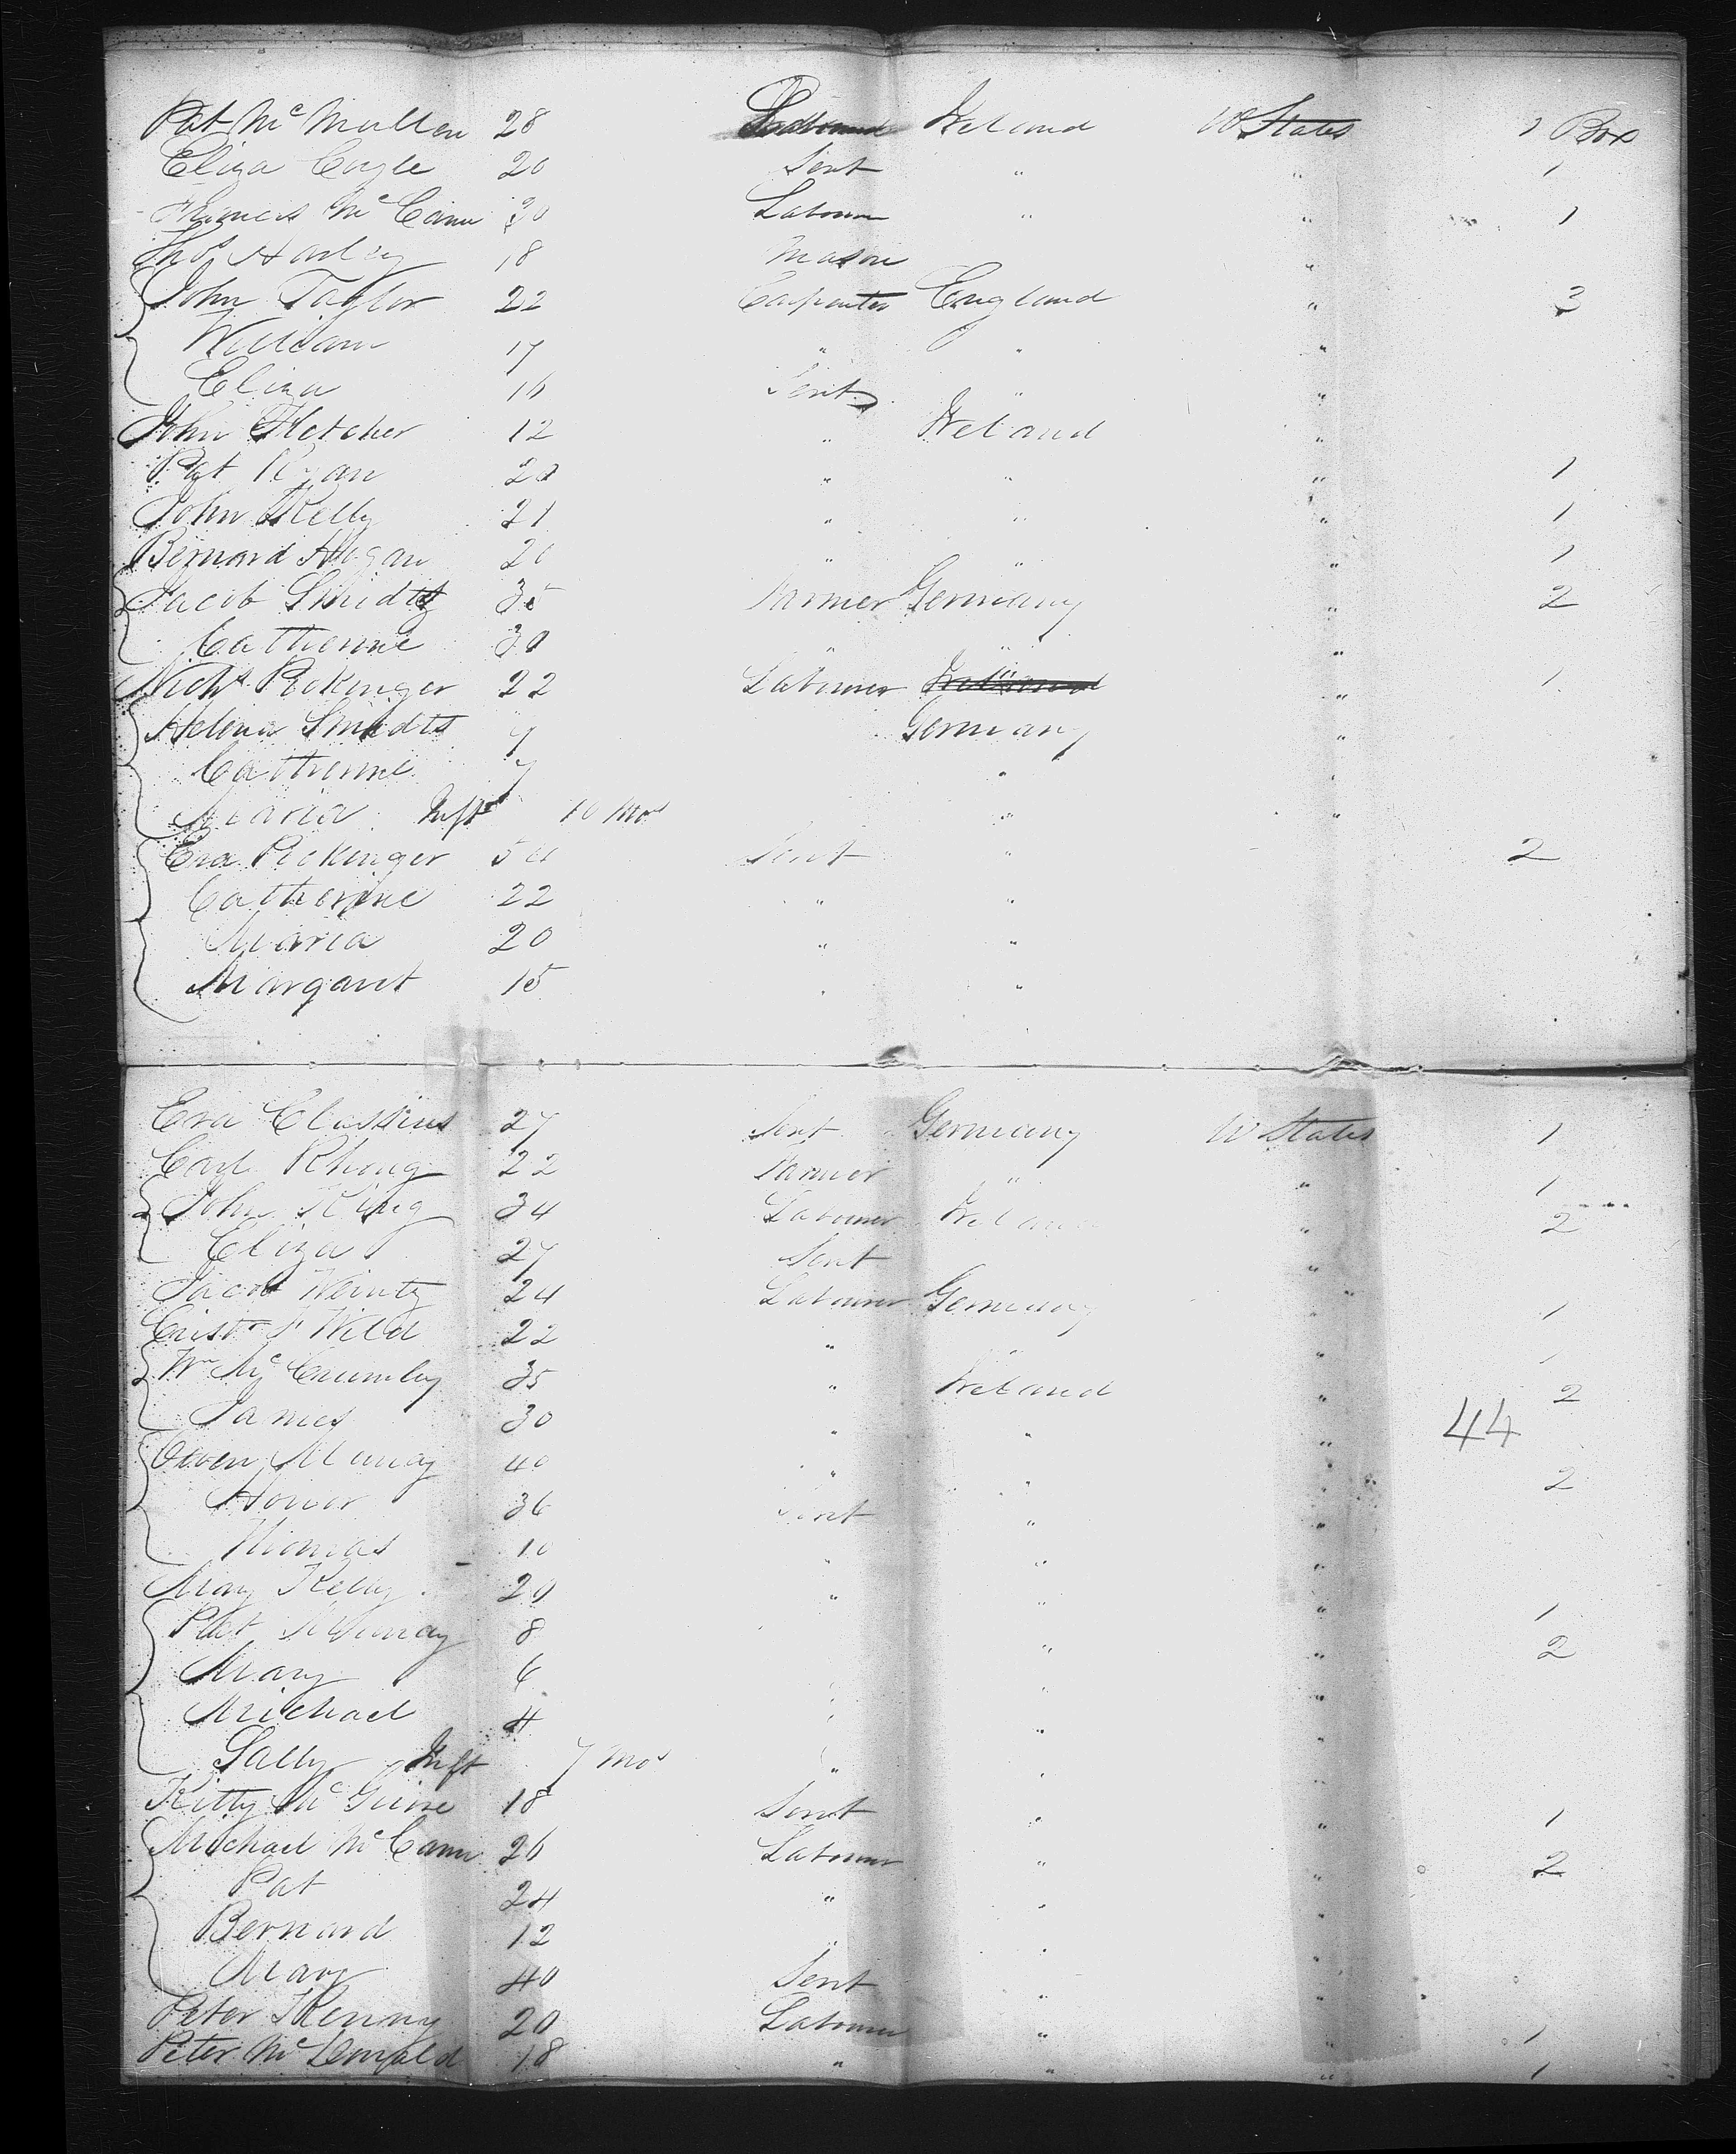 Pat McMullen 28 Labourer Ireland U States 1 Box
Eliza Coyle 20 Servt " " 1
Francis McCann 30 Labourer " " 1
Thos Harley 18 Mason "
John Taylor 22 Carpenter England " 3
William 17 " " "
Eliza 16 Servt " "
John Fletcher 12 " Ireland "
Pat Ryan 20 " " " 1
John Kelly 21 " " " 1
Bernard Hogan 20 " " " 1
Jacob Smidtz 35 Farmer Germany " 2
Catherine 30 " " "
Nichs Pickinger 22 Labourer Ireland " 1
Helena Smidts 9 Germany "
Catherine 7 " "
Maria Inft 10 Mos " "
Eva Pickinger 50 Servt " 2
Catherine 22 " "
Maria 20 " "
Margaret 15 " "
Eva Classius 27 Servt Germany U States 1
Carl Rhing 22 Farmer " " 1
John King 34 Labourer Ireland " 2
Eliza 27 Servt "
Jacob Weintz 24 Labourer Germany " 1
Crist F Wild 22 " " " 1
Wm McCrumley 35 " Ireland " 2
James 30 " " "
44
Owen Murray 40 " " " 2
Honor 36 Servt " "
Thomas 10 " " "
Mary Kelly 20 " " " 1
Pat Murray 8 " " 2
Mary 6 " " "
Michael 4 " " "
Sally Inft 7 Mos " "
Kitty McGuire 18 Servt " " 1
Michael McCann 26 Labourer " " 2
Pat 24 " " "
Bernard 12 " " "
Mary 40 Servt " "
Peter Kenny 20 Labourer " " 1
Peter McDonald 18 " " " 1